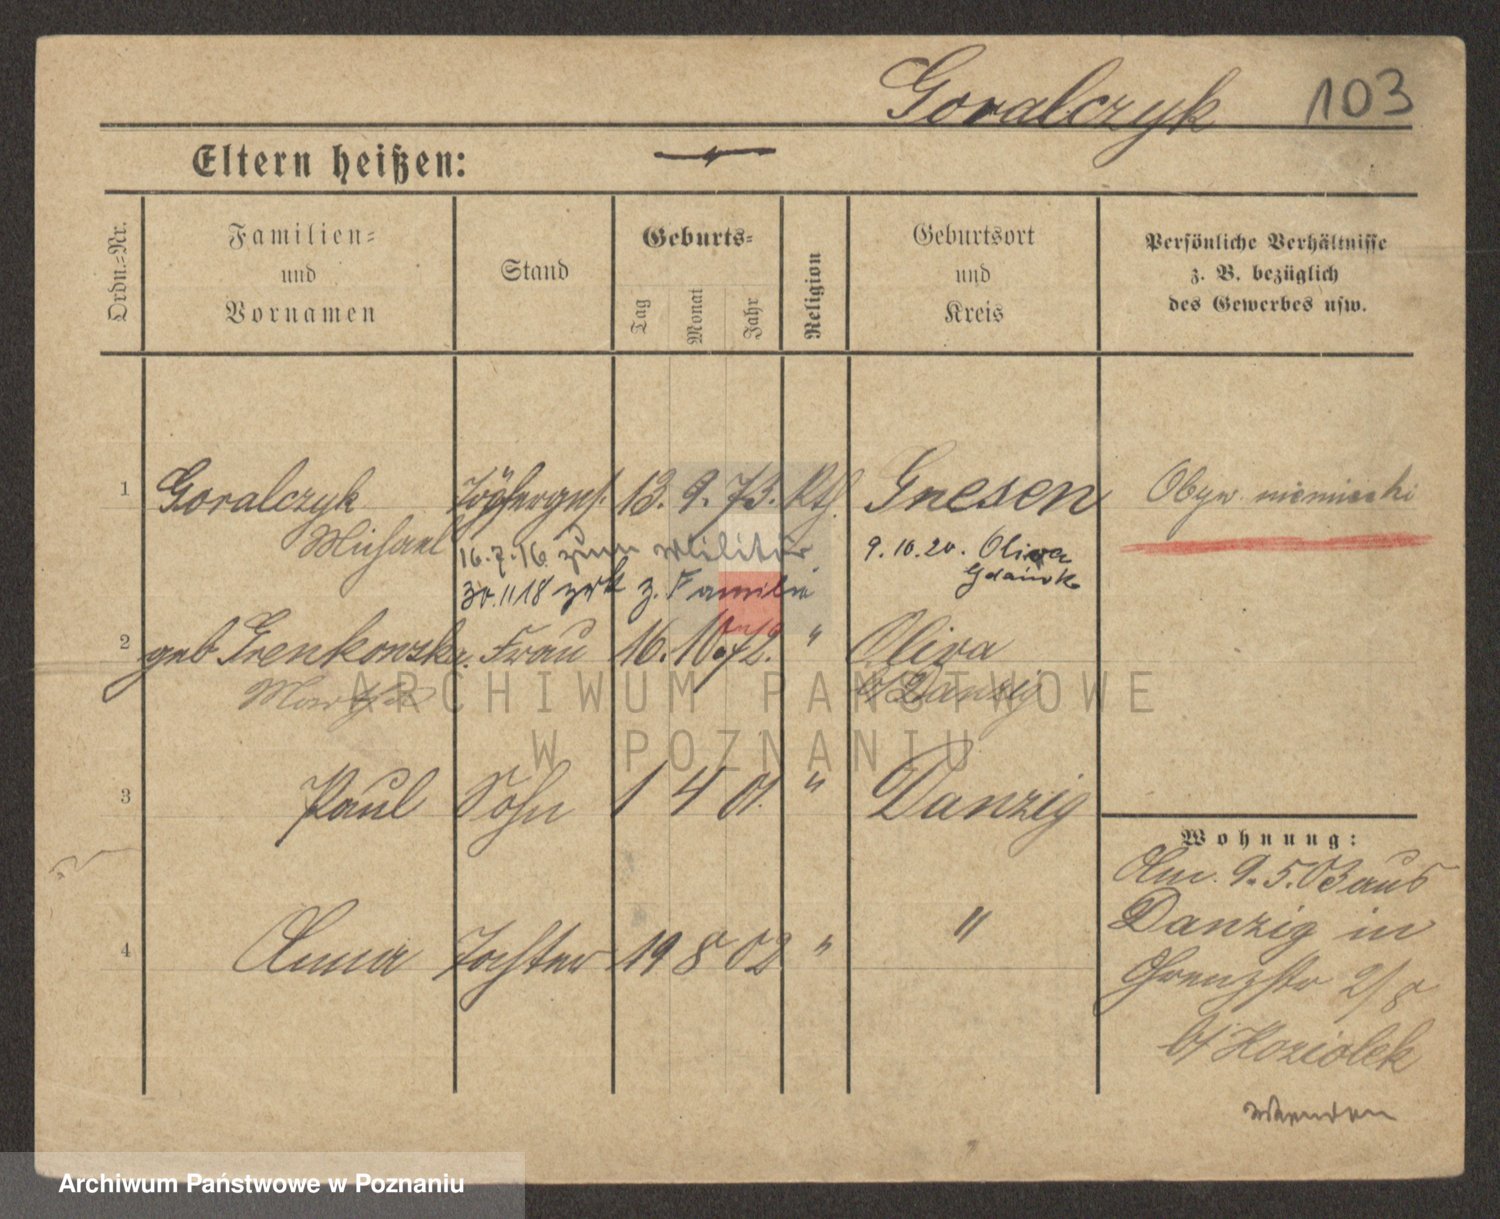 Goralczyk 103
Eltern heißen: —
Ordn.-Nr.
Familien-
und
Vornamen
Stand
Geburts-
Tag
Monat
Jahr
Religion
Geburtsort
und
Kreis
Persönliche Verhältnisse
z. B. bezüglich
des Gewerbes usw.
1 Goralczyk Töpferges. 13. 9. 73. Kth. Gnesen Obyw. niemiecki
Michael
16.7.16 zum Militär 9.10.20. Oliva
30.11.18 zrk z. Familie Gdańsk
2 geb. Frau 16. 10. 72. " Oliva
Martha b/ Danzig
3 Paul Sohn 1 4 01. " Danzig
4 Anna Tochter 19 8 02 " "
Wohnung:
Am. 9.5.03 aus
Danzig in
Grenzstr 2/8
b/ Koziolek
Wenden
ARCHIWUM PAŃSTWOWE
W POZNANIU
Archiwum Państwowe w Poznaniu